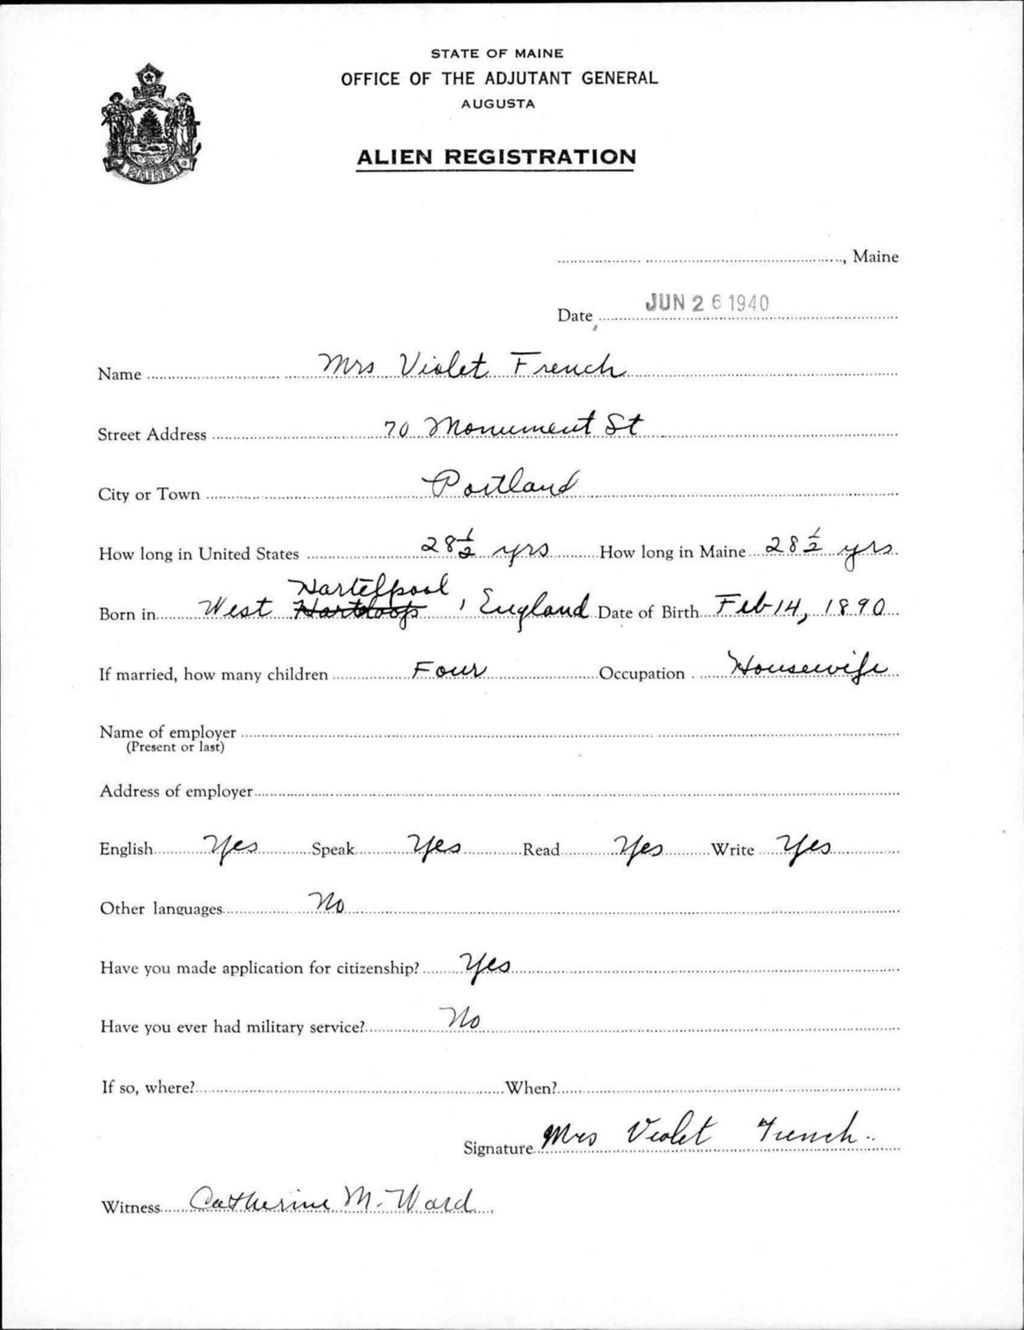 STATE OF MAINE
OFFICE OF THE ADJUTANT GENERAL
AUGUSTA
ALIEN REGISTRATION
MAINE
, Maine
Date JUN 26 1940
Name Mrs Violet French
Street Address 70 Monument St
City or Town Portland
How long in United States 28 1/2 yrs How long in Maine 28 1/2 yrs
Hartelpool
Born in West , England Date of Birth Feb 14, 1890
If married, how many children Four Occupation Housewife
Name of employer
(Present or last)
Address of employer
English Yes Speak Yes Read Yes Write Yes
Other languages No
Have you made application for citizenship? Yes
Have you ever had military service? No
If so, where? When?
Signature Mrs Violet French
Witness Catherine M. Ward